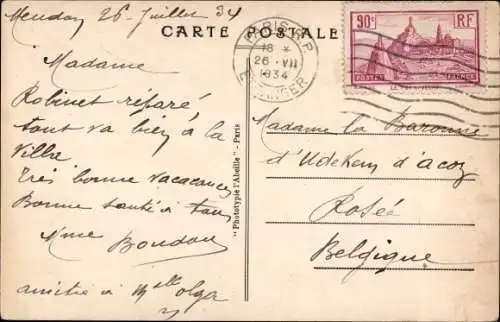 Meudon 26 Juillet 34
CARTE POSTALE
Madame
Robinet réparé
tout va bien à la
Villa
Très bonne vacacances
Bonne santé à tous
Mme Boudou
amitié à Mlle Olga
"Phototypie l'Abeille" - Paris
PARIS R.P.
18 *
26 · VII
1934
ETRANGER
90c RF
POSTES
Madame la Baronne
d'Udekem d'acoz
Rosée
Belgique